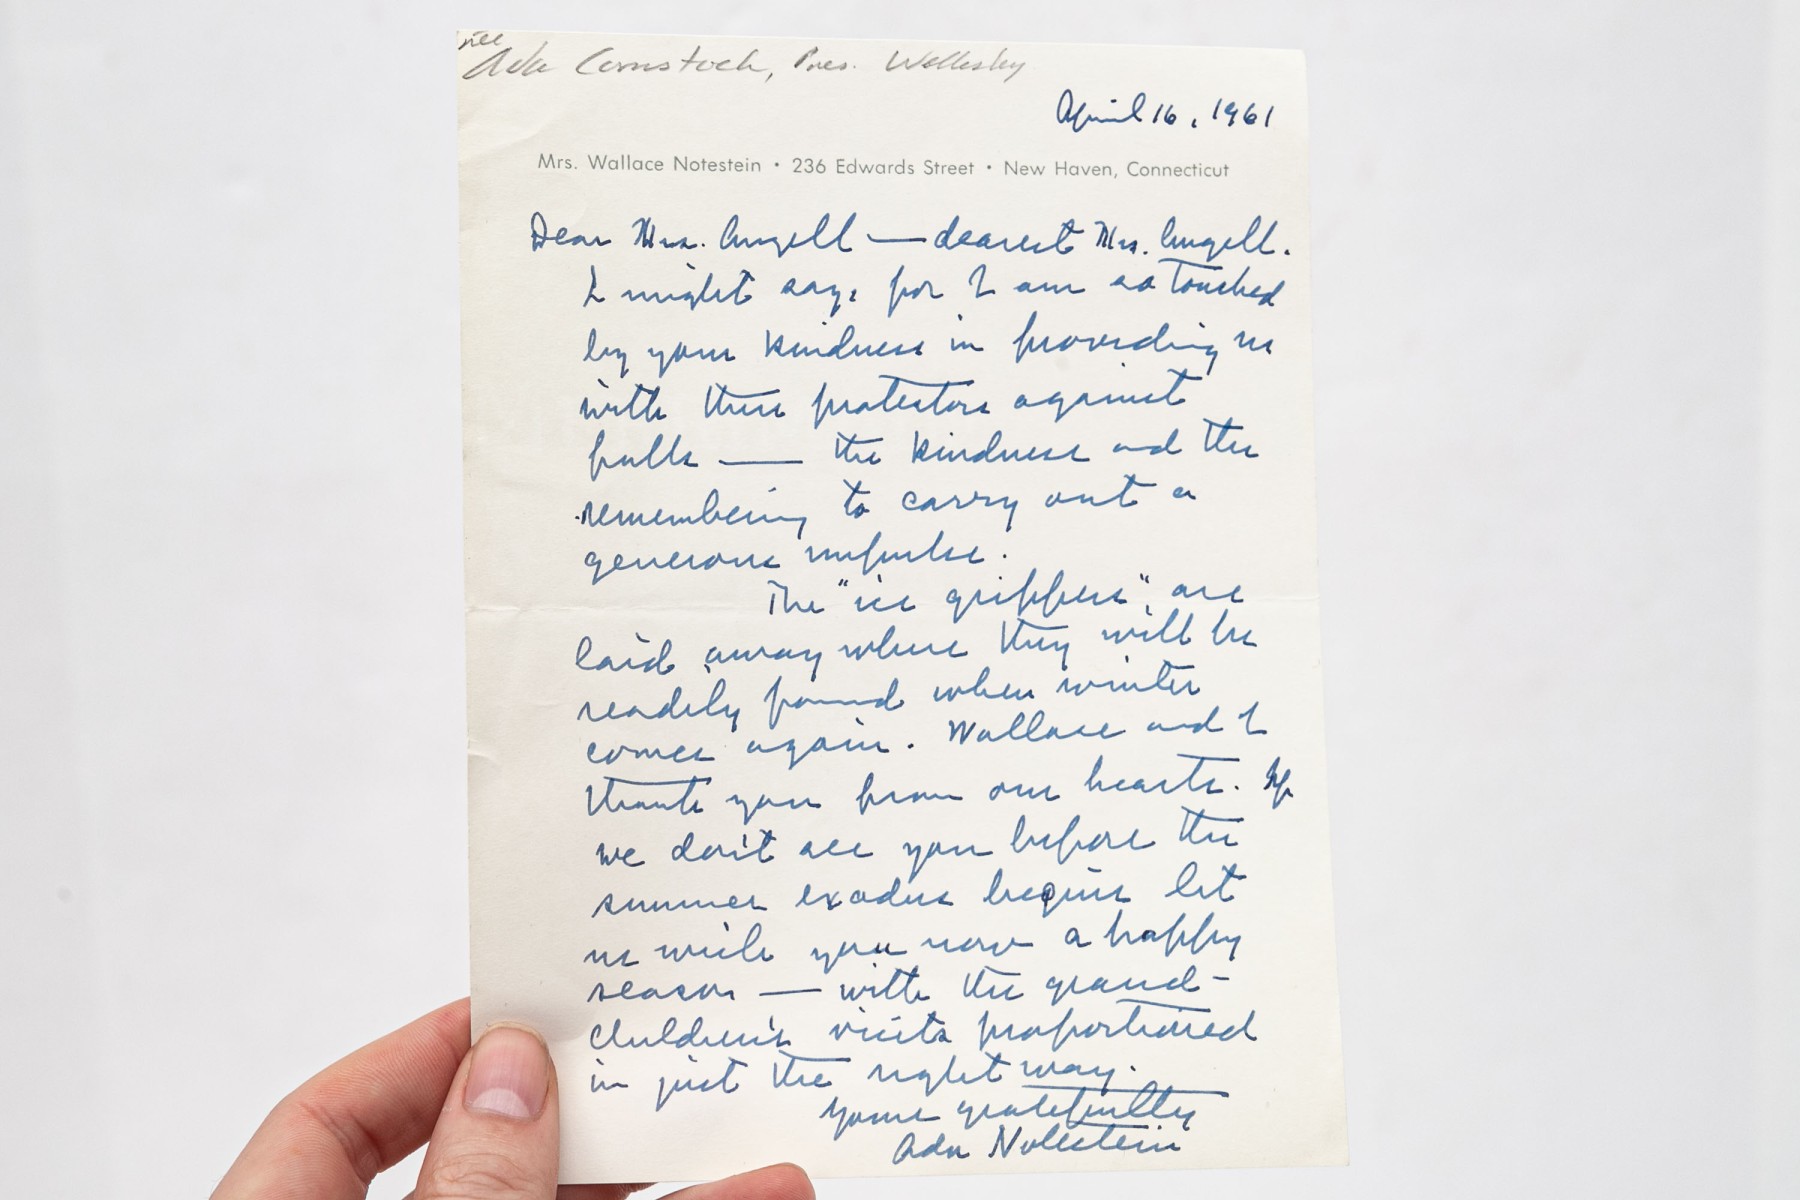 née
Ada Comstock, Pres. Wellesley
April 16, 1961
Mrs. Wallace Notestein • 236 Edwards Street • New Haven, Connecticut
Dear Mrs. Angell — dearest Mrs. Angell.
I might say, for I am so touched
by your kindness in providing us
with these protectors against
falls — the kindness and the
remembering to carry out a
generous impulse.
The "ice grippers" are
laid away where they will be
readily found when winter
comes again. Wallace and I
thank you from our hearts. If
we don't see you before the
summer exodus begins let
us wish you now a happy
season — with the grand-
children's visits proportioned
in just the right way.
Yours gratefully
Ada Notestein